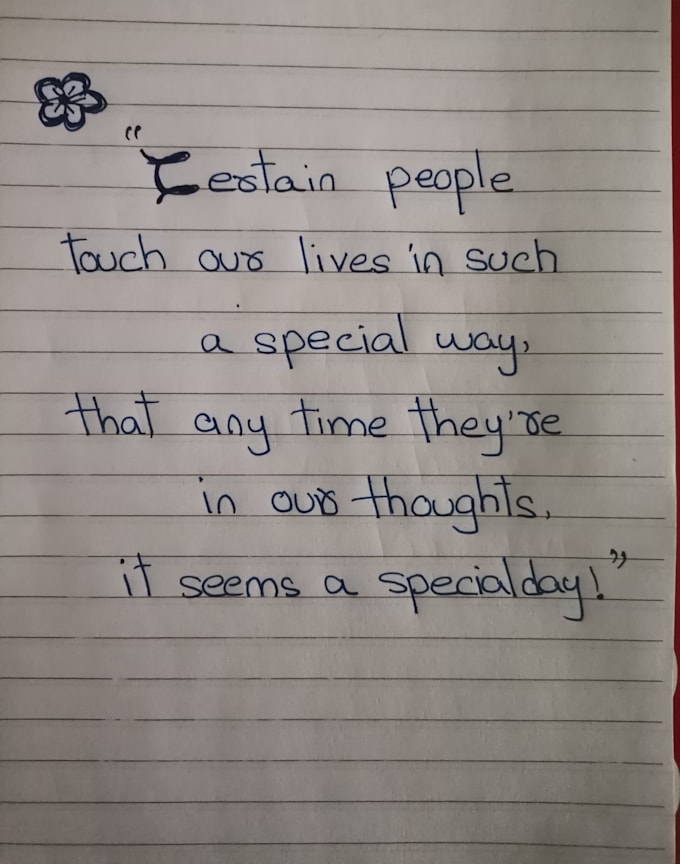 "Certain people
touch our lives in such
a special way,
that any time they're
in our thoughts,
it seems a special day!"